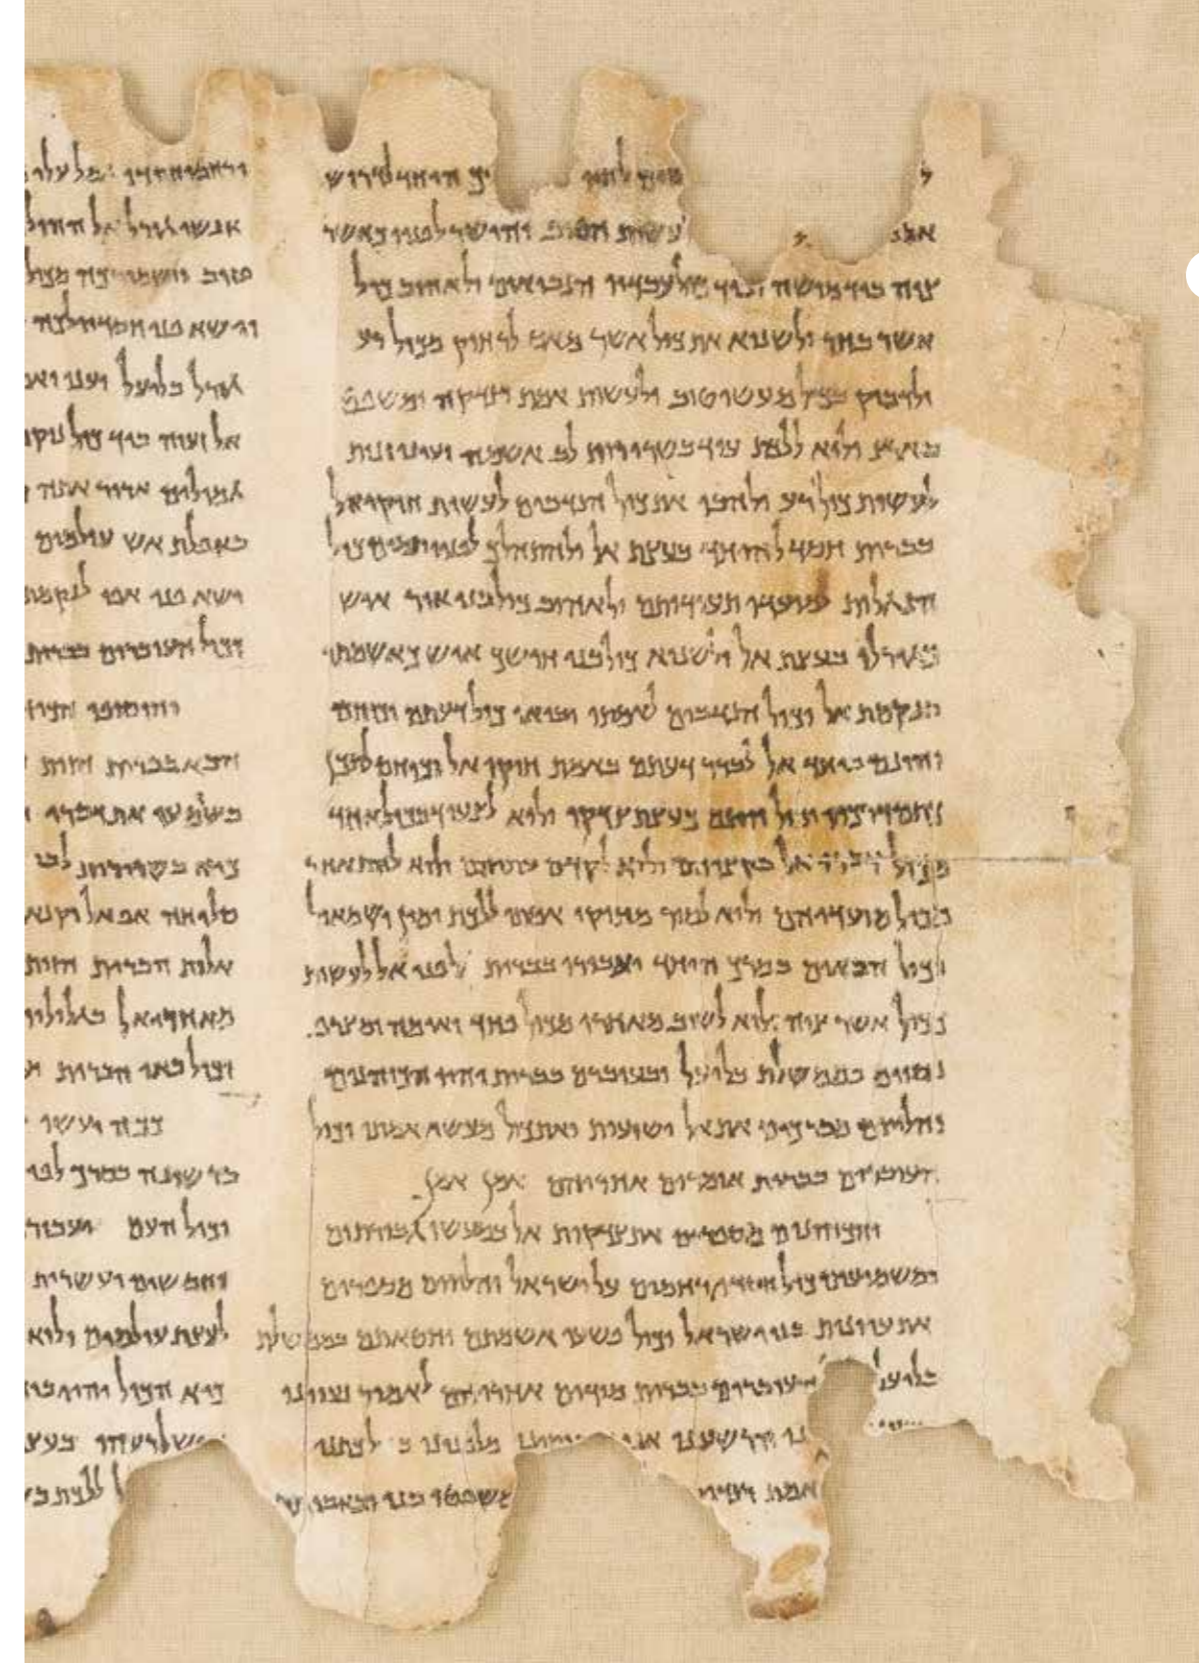 היחד לדרוש
לעשות הטוב והישר לפניו כאשר
צוה ביד מושה וביד כול עבדיו הנביאים ולאהוב כול
אשר בחר ולשנוא את כול אשר מאס לרחוק מכול רע
ולדבוק בכול מעשי טוב ולעשות אמת וצדקה ומשפט
בארץ ולוא ללכת עוד בשרירות לב אשמה ועיני זנות
לעשות כול רע ולהבי את כול הנדבים לעשות חוקי אל
בברית חסד להוחד בעצת אל ולהתהלך לפניו תמים כול
הנגלות למועדי תעודותם ולאהוב כול בני אור איש
כגורלו בעצת אל ולשנוא כול בני חושך איש כאשמתו
בנקמת אל וכול הנדבים לאמתו יביאו כול דעתם וכוחם
והונם ביחד אל לברר דעתם באמת חוקי אל וכוחם לתכן
כתם דרכיו וכול הונם כעצת צדקו ולוא לצעוד בכול אחד
מכול דברי אל בקציהם ולוא לקדם עתיהם ולוא להתאחר
מכול מועדיהם ולוא לסור מחוקי אמתו ללכת ימין ושמאול
וכול הבאים בסרך היחד יעבורו בברית לפני אל לעשות
ככול אשר צוה ולוא לשוב מאחרו מכול פחד ואימה ומצרף
נסוים בממשלת בליעל ובעוברם בברית יהיו הכוהנים
והלויים מברכים את אל ישועות ואת כול מעשי אמתו וכול
העוברים בברית אומרים אחריהם אמן אמן
והכוהנים מספרים את צדקות אל במעשי גבורתום
ומשמיעים כול חסדי רחמים על ישראל והלויים מספרים
את עוונות בני ישראל וכול פשעי אשמתם וחטאתם בממשלת
בליעל העוברים בברית מודים אחריהם לאמור נעוינו
הרשענו מלפנינו
אמת משפטו בנו
ורחמי חסדו גמל עלינו
אנשי גורל אל
טוב וישמורכה מכול
וישא פני חסדיו לכה
גורל בליעל וענו
אל זעוה ביד כול
גמולים ארור אתה
באפלת אש עולמים
ישא פני אפו
וכול העוברים
והוסיפו
הבא בברית הזות
בשומעו את דברי
כיא בשרירות לבי
סליחה אף אל
אלות הברית הזות
מאחרי אל בגלוליו
וכול באי הברית
ככה יעשו
ברשונה בסרך לפי
וכול העם
וחמשים ועשרות
לעצת עולמים ולוא
כיא הכול
לרעהו
ללכת